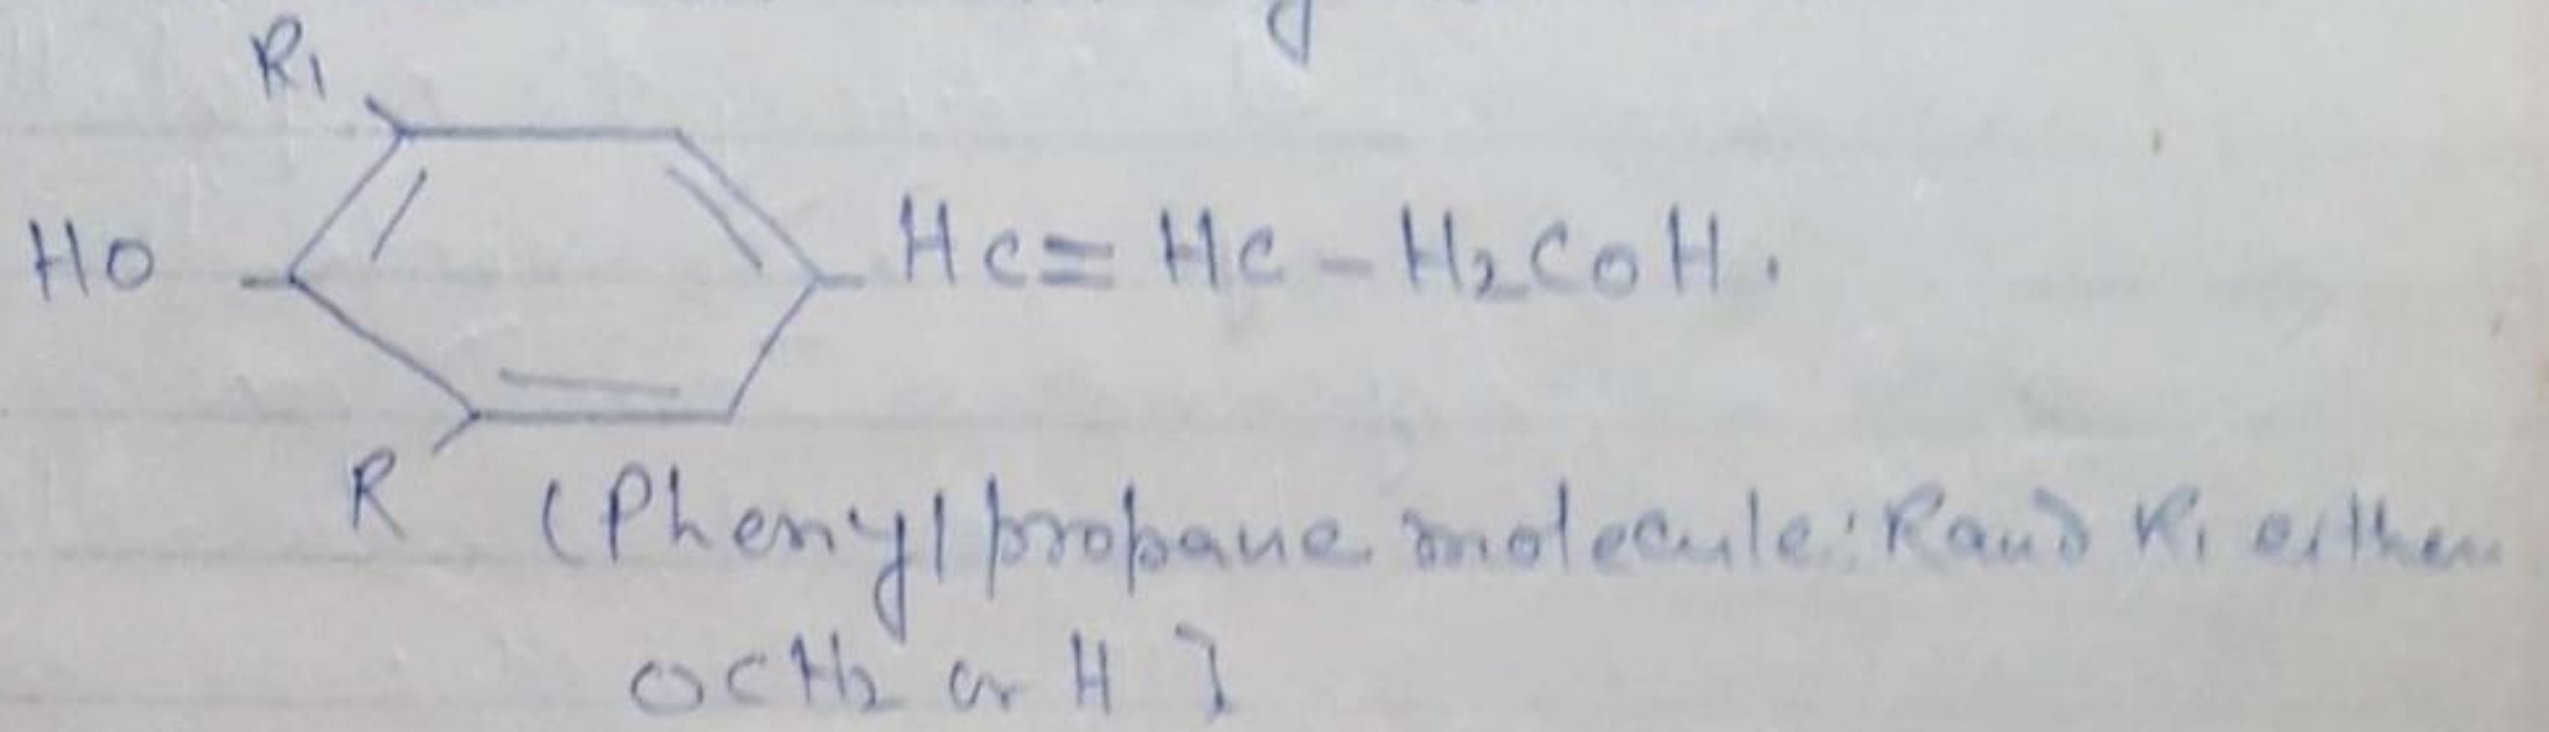 R1
HO
HC=HC-H2COH.
R
(Phenyl propane molecule: R and R1 either
OCH2 or H ]